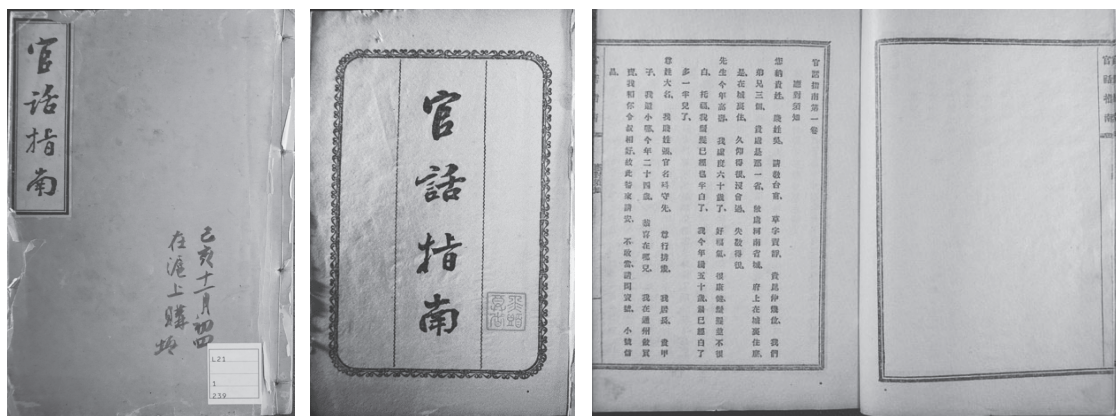 官話指南
己亥十一月初四
在滬上購
L21
1
239
官話指南
官話指南第一卷
應對須知
您納貴姓、賤姓吳、請教台甫、草字資靜、貴昆仲幾位、我們
弟兄三個、貴處是那一省、敝處河南省城、府上在城裏住麼、
是在城裏住、久仰得很、沒會過、失敬得很、
先生今年高壽、我虛度六十歲了、好福氣、很康健、鬚髮並不很
白、托福、我鬚髮已經也半白了、我今年纔五十歲、鬚已經白了
多一半兒了、
尊姓大名、我賤姓張、官名叫守先、尊行排幾、我居長、貴甲
子、我還小哪、今年二十四歲、恭喜在那兒、我在通州做買
賣、我和你令叔相好、故此特來請安、不敢當、請問寶號、小號信
昌、
官話指南